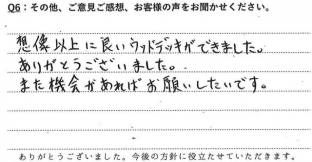 Q6：その他、ご意見ご感想、お客様の声をお聞かせください。
想像以上に良いウッドデッキができました。
ありがとうございました。
また機会があればお願いしたいです。
ありがとうございました。今後の方針に役立たせていただきます。